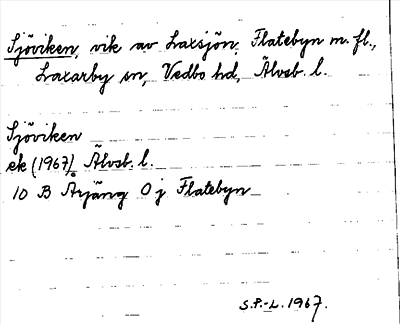 Sjöviken, vik av Laxsjön, Flatebyn m. fl.,
Laxarby sn, Vedbo hd, Älvsb. l.
Sjöviken
ek (1967). Älvsb. l.
10 B Årjäng 0 j Flatebyn
S.P.-L. 1967.